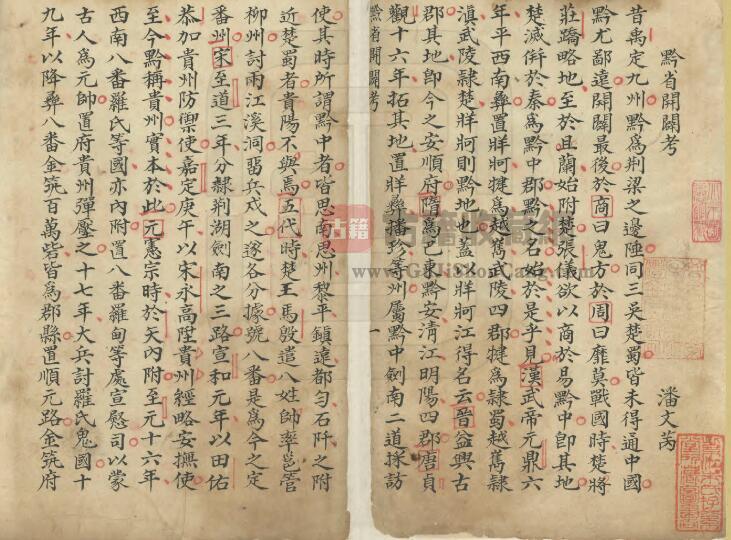 黔省開闢考
潘文芮
昔禹定九州黔為荆梁之邊陲同三吳楚蜀皆未得通中國
黔尤鄙遠開闢最後於商曰鬼方於周曰靡莫戰國時楚將
莊蹻略地至於且蘭始附楚張儀欲以商於易黔中卽其地
楚滅併於秦為黔中郡黔之名始於是乎見漢武帝元鼎六
年平西南彝置牂牁犍為越嶲武陵四郡犍為隷蜀越嶲隷
滇武陵隷楚牂牁則黔地也蓋以牂牁江得名云晉益興古
郡其地卽今之安順府隋為巴東黔安清江明陽四郡唐貞
觀十六年拓其地置牂彝播珍等州屬黔中劍南二道採訪
黔省開闢考 一
使其時所謂黔中者皆思南思州黎平鎮遠都勻石阡之附
近楚蜀者貴陽不與焉五代時楚王馬殷遣八姓帥率邕管
柳州討兩江溪洞畱兵戍之遂各分據號八番是為今之定
番州宋至道三年分隷荆湖劍南之三路宣和元年以田佑
恭加貴州防禦使嘉定庚午以宋永高陞貴州經略安撫使
至今黔稱貴州實本於此元憲宗時於矢內附至元十六年
西南八番羅氏等國亦內附置八番羅甸等處宣慰司以蒙
古人為元帥置府貴州彈壓之十七年大兵討羅氏鬼國十
九年以降彝八番金筑百萬砦皆為郡縣置順元路金筑府
古籍
古籍收藏網